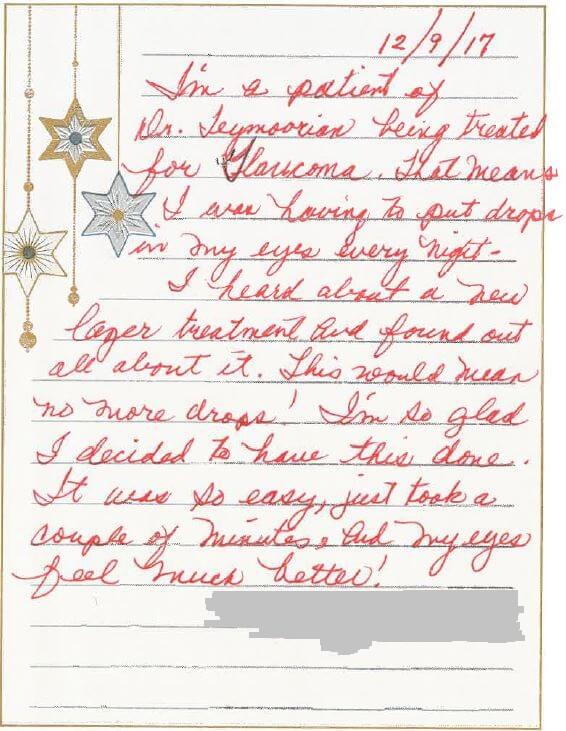 12/9/17
I'm a patient of
Dr. Teymoorian being treated
for Glaucoma. That means
I was having to put drops
in my eyes every night-
I heard about a new
lazer treatment and found out
all about it. This would mean
no more drops! I'm so glad
I decided to have this done.
It was so easy, just took a
couple of minutes, and my eyes
feel much better!